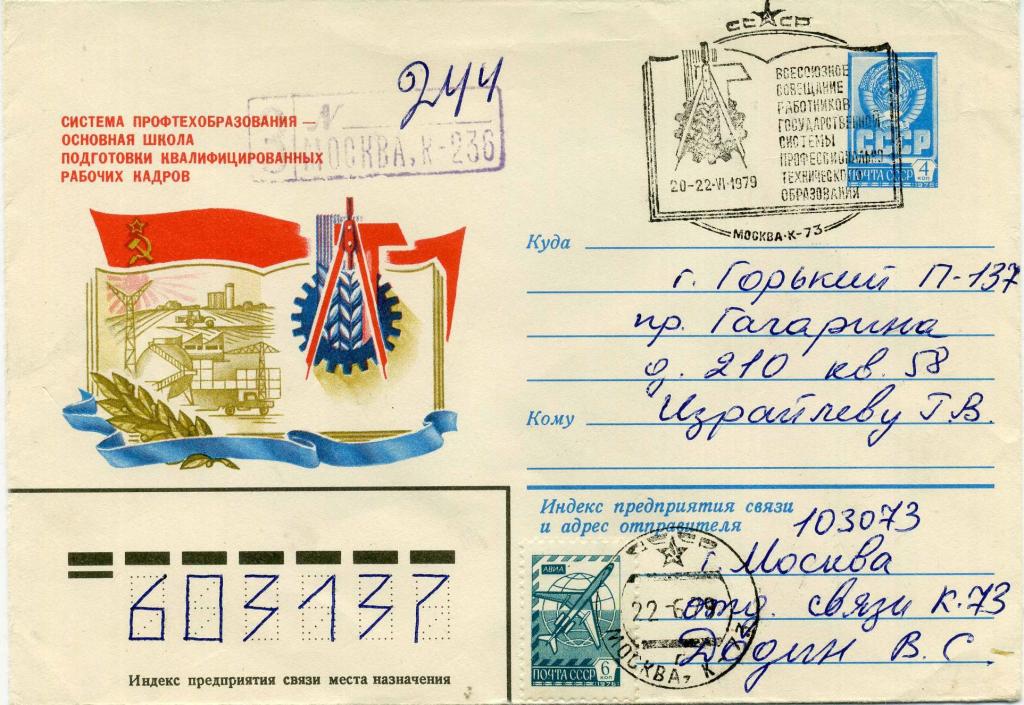 244
З N
МОСКВА, К-236
СИСТЕМА ПРОФТЕХОБРАЗОВАНИЯ —
ОСНОВНАЯ ШКОЛА
ПОДГОТОВКИ КВАЛИФИЦИРОВАННЫХ
РАБОЧИХ КАДРОВ
СССР
ВСЕСОЮЗНОЕ
СОВЕЩАНИЕ
РАБОТНИКОВ
ГОСУДАРСТВЕННОЙ
СИСТЕМЫ
ПРОФЕССИОНАЛЬНО
ТЕХНИЧЕСКОГО
ОБРАЗОВАНИЯ
20-22-VI-1979
МОСКВА-К-73
СССР
ПОЧТА СССР 4 коп
1976
Куда
г. Горький П-137
пр. Гагарина
д. 210 кв. 58
Кому Израйлеву Г.В.
Индекс предприятия связи
и адрес отправителя
103073
г. Москва
отд. связи К-73
Додин В. С.
АВИА
ПОЧТА СССР 6 коп
1976
СССР
22-6-79
МОСКВА, К-73
603137
Индекс предприятия связи места назначения